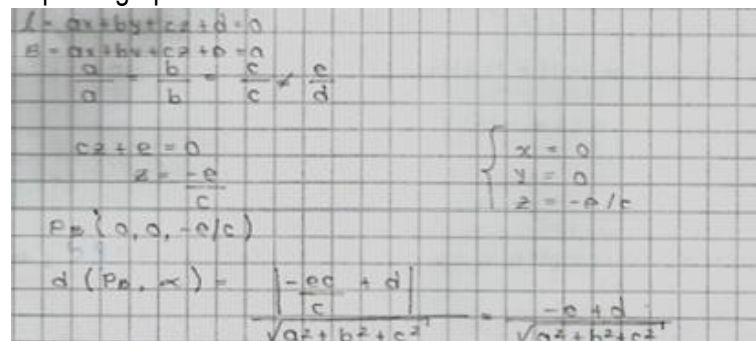 α = ax+by+cz+d=0
B = ax+by+cz+e=0
a/a = b/b = c/c ≠ e/d
cz+e=0
z = -e/c
{ x = 0
y = 0
z = -e/c
P_B (0, 0, -e/c)
d (P_B, α) = |-ec/c + d| / √a²+b²+c² = -e+d / √a²+b²+c²